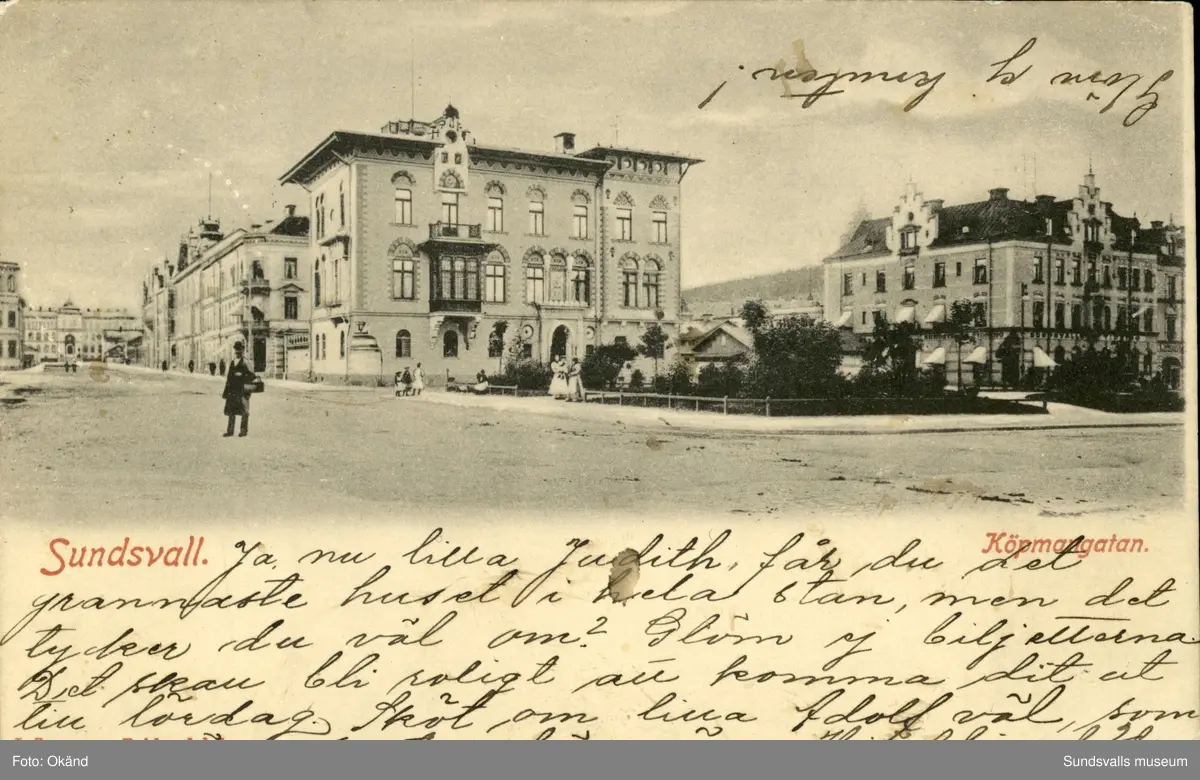 Glöm ej kemtsen!
Sundsvall.
Köpmangatan.
Ja, nu lilla Judith, får du det
grannaste huset i hela stan, men det
tycker du väl om? Glöm ej biljetterna
Det skall bli roligt att komma dit ut
till lördag. Sköt om lilla Adolf väl, som
Foto: Okänd
Sundsvalls museum